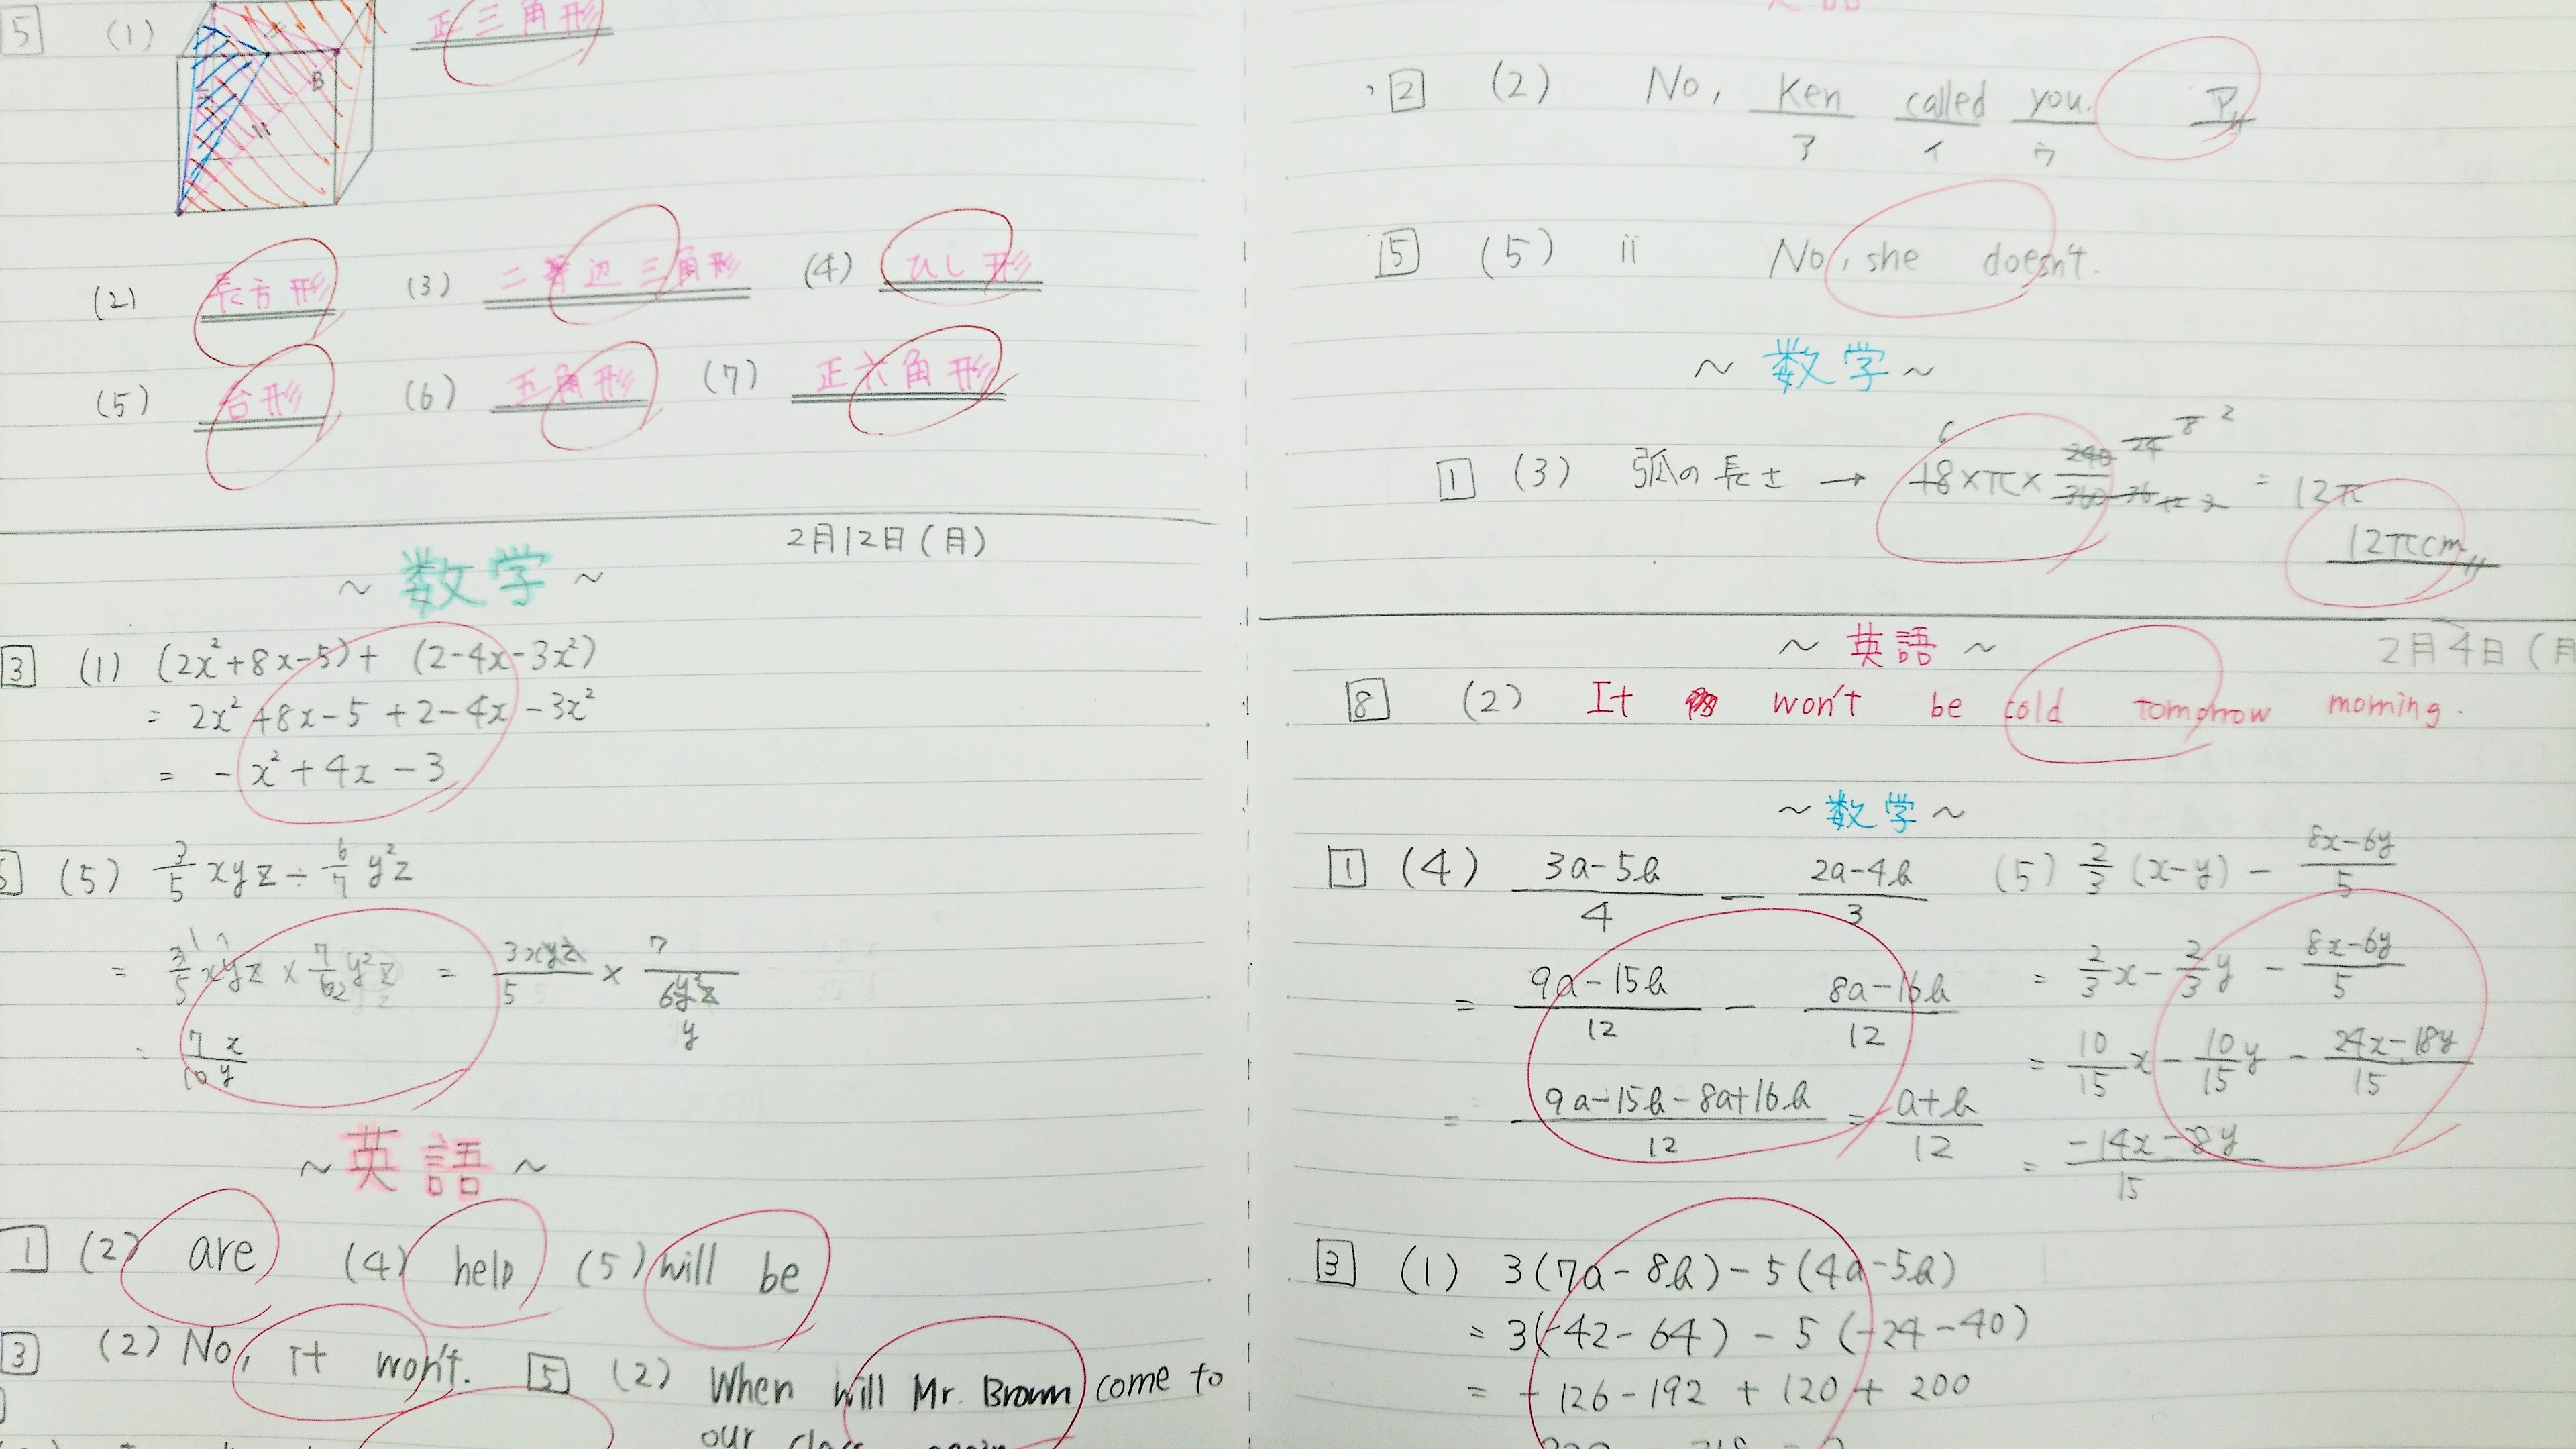 5 (1) 正三角形
B
(2) 長方形 (3) 二等辺三角形 (4) ひし形
(5) 台形 (6) 五角形 (7) 正六角形
2月12日(月)
~ 数学 ~
3 (1) (2x²+8x-5)+(2-4x-3x²)
= 2x²+8x-5+2-4x-3x²
= -x²+4x-3
(5) 3/5 xyz ÷ 6/7 y²z
= 3/5 xyz × 7/6 y²z = 3xyz/5 × 7/6y²z
y
= 7x/10y
~ 英語 ~
1 (2) are (4) help (5) will be
3 (2) No, it won't. 5 (2) When will Mr. Brown come to
our class again
2 (2) No, Ken called you. ア
ア イ ウ
5 (5) ii No, she doesn't.
~ 数学 ~
1 (3) 弧の長さ → 18×π×240/360 = 12π
12πcm
2月4日(月
~ 英語 ~
8 (2) It won't be cold tomorrow morning.
~ 数学 ~
1 (4) (3a-5b)/4 - (2a-4b)/3
= (9a-15b)/12 - (8a-16b)/12
= (9a-15b-8a+16b)/12 = (a+b)/12
(5) 2/3 (x-y) - (8x-6y)/5
= 2/3 x - 2/3 y - (8x-6y)/5
= 10/15 x - 10/15 y - (24x-18y)/15
= (-14x-8y)/15
3 (1) 3(7a-8b)-5(4a-5b)
= 3(-42-64)-5(-24-40)
= -126-192+120+200